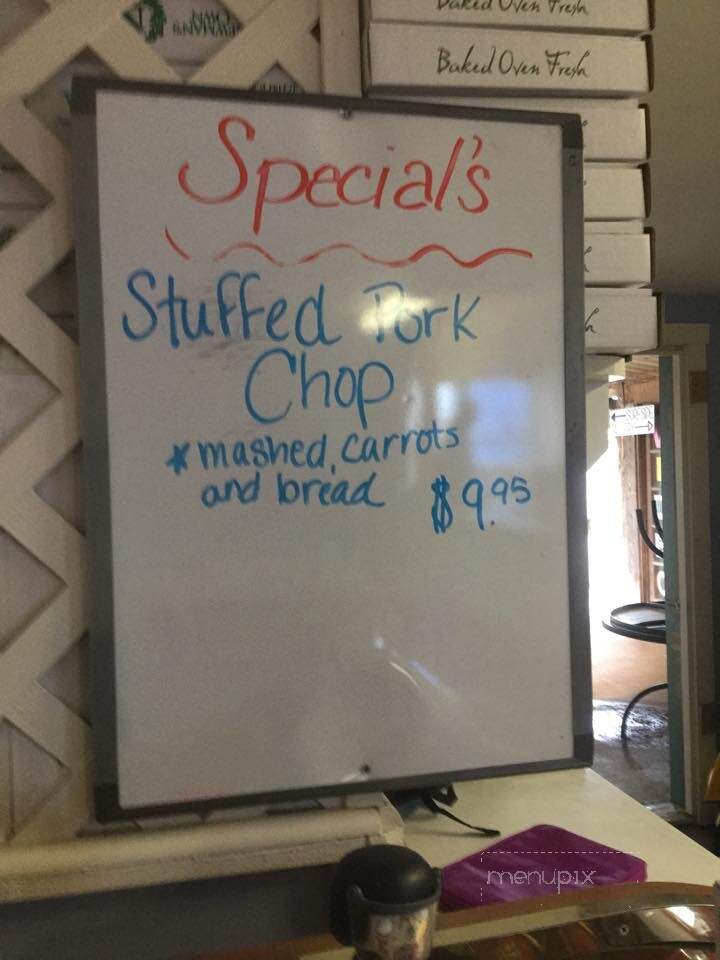 Baked Oven Fresh
Baked Oven Fresh
Special's
Stuffed Pork
Chop
* mashed, carrots
and bread $9.95
menupix